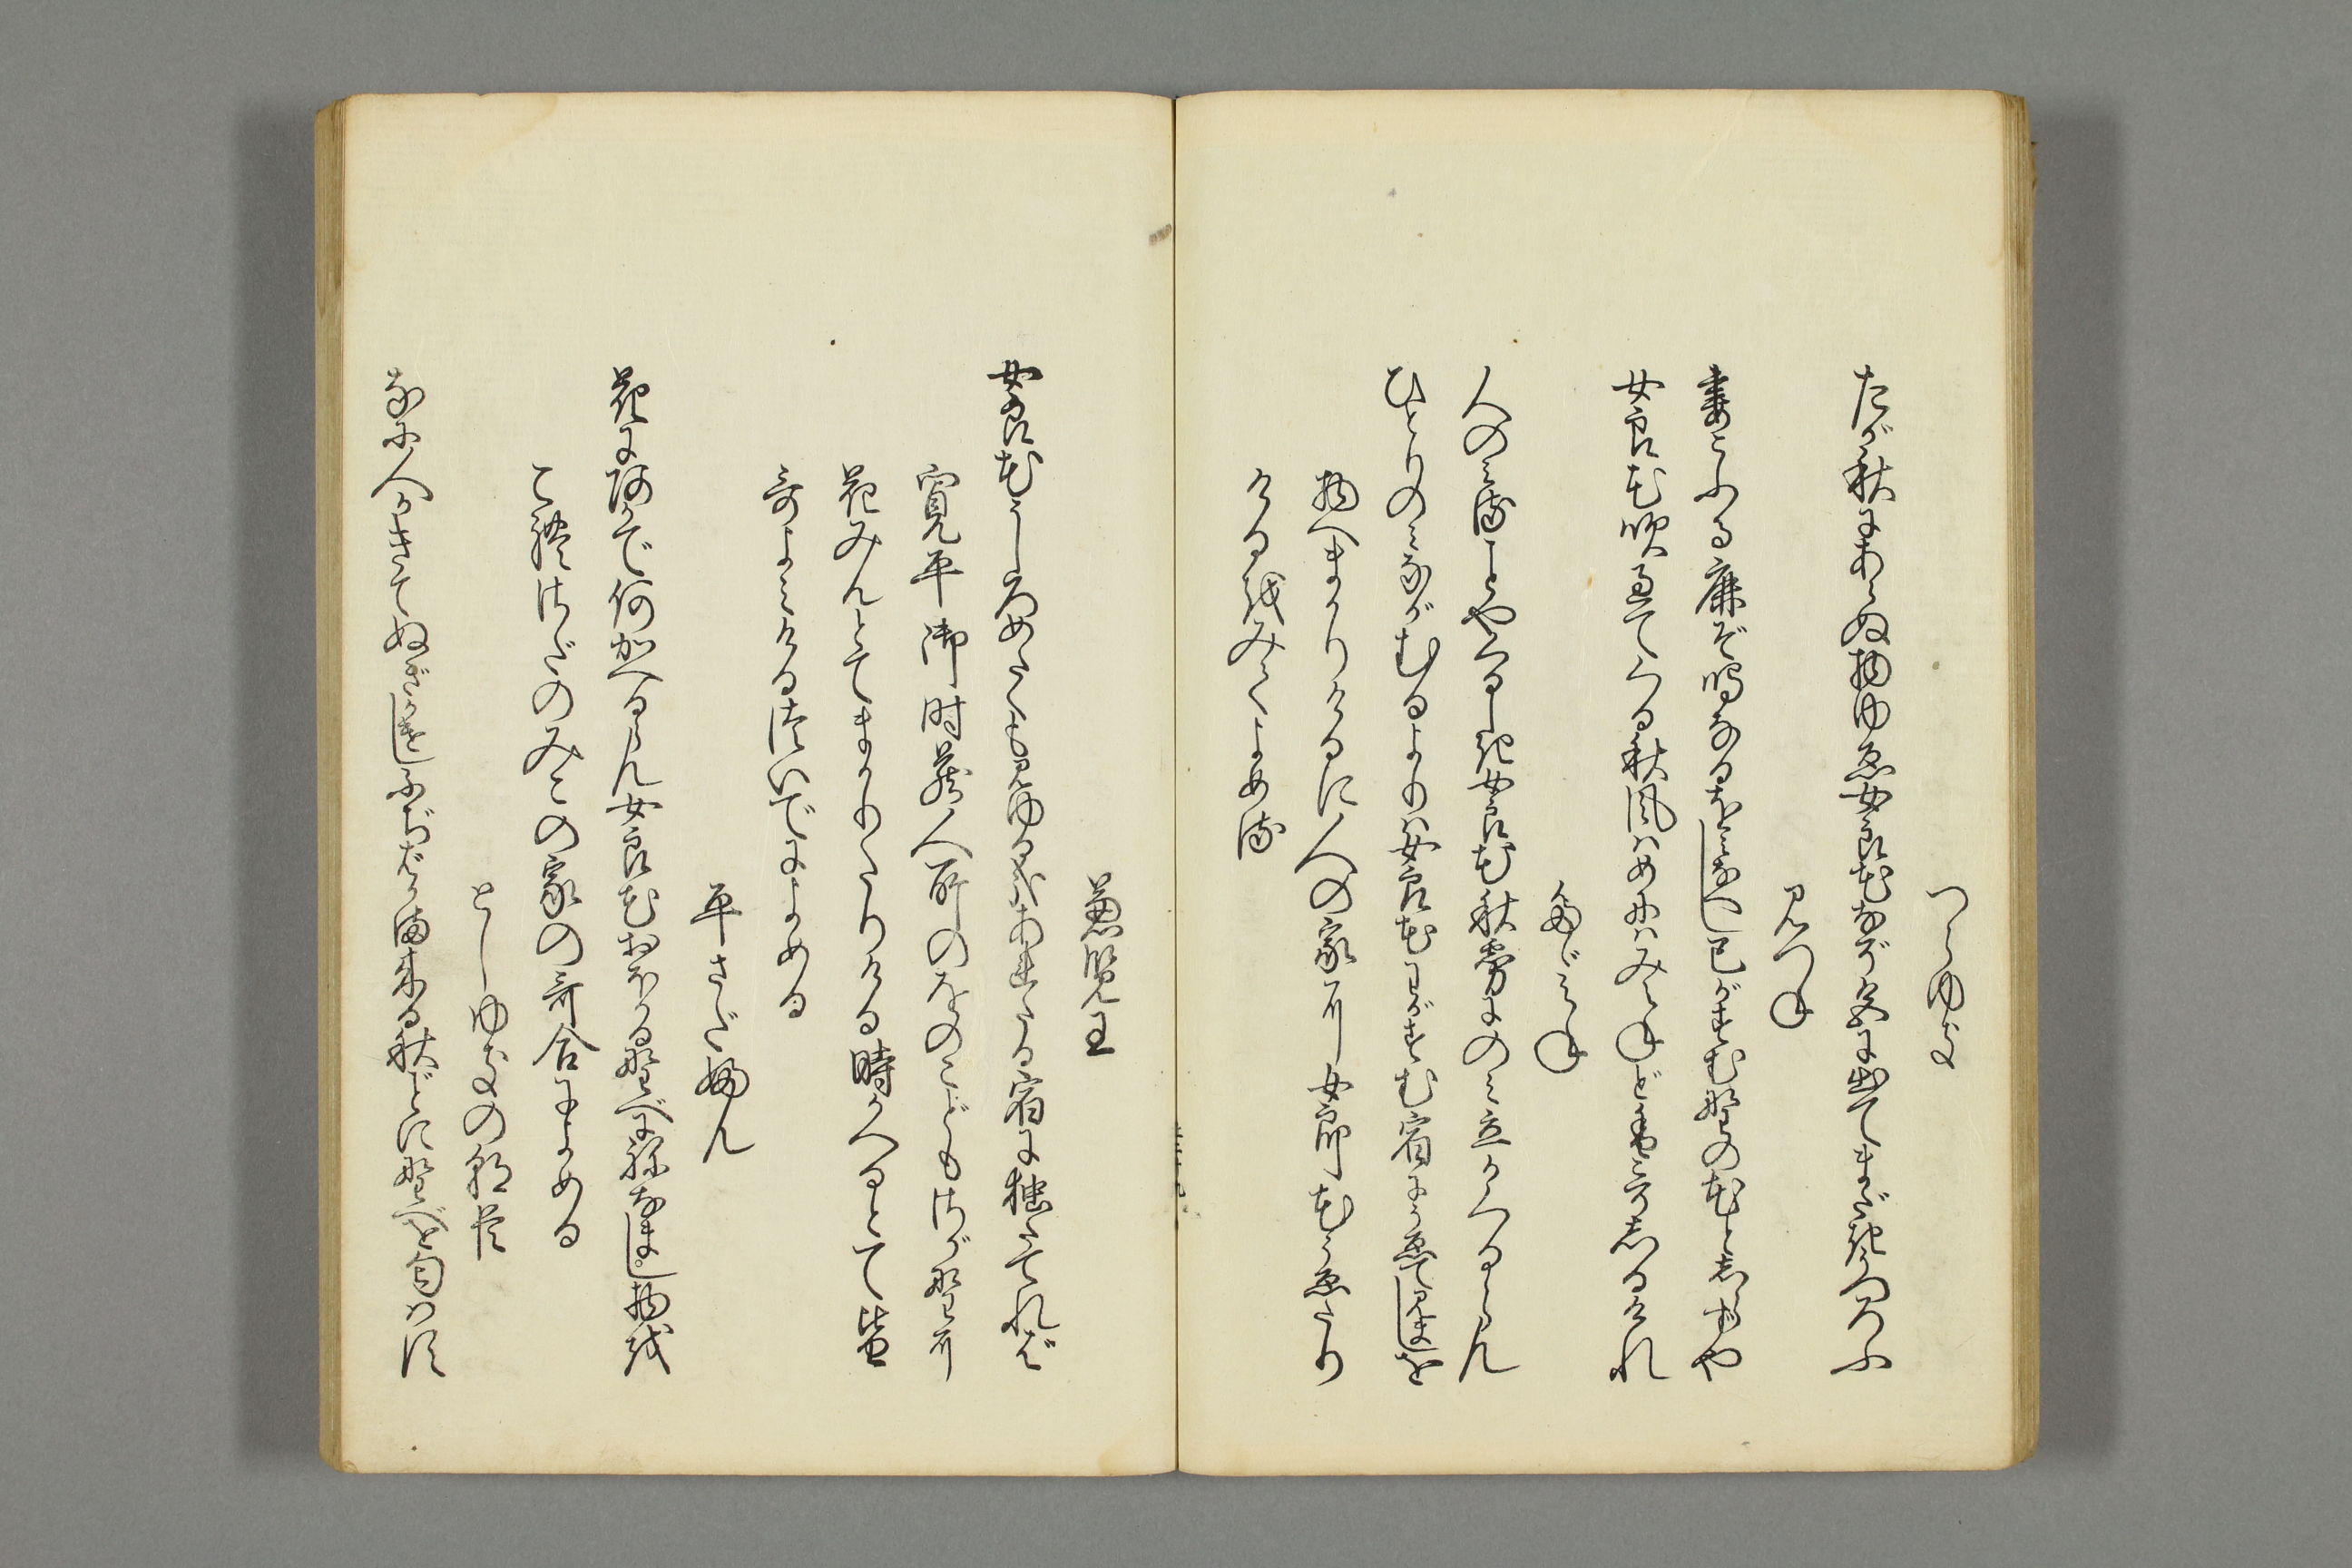 つらゆき
たが秋にあらぬ物ゆゑ女良花なぞ色に出てまだき移ろふ
みつね
妻こふる鹿ぞ鳴なるをみなへし己がすむ野の花と志らずや
女良花吹過てくる秋風はめにはみえねど香こそ志るけれ
たゞみね
人のみることやくるしき女良花秋霧にのみ立かくるらん
ひとりのみながむるよりは女良花わがすむ宿にうゑて見ましを
物へまかりけるに人の家に女郎花うゑたり
けるをみてよめる
兼覧王
女良花うしろめたくも見ゆるかなあれたる宿に独たてれば
寛平御時蔵人所のをのこども さが野に
花みんとてまかりたりける時かへるとて皆
哥よみけるついでによめる
平さだふん
花にあかで何かへるらん女良花おほかる野べにねなまし物を
これさだのみこの家の哥合によめる
としゆきの朝臣
なに人かきてぬぎかけしふぢばかま来る秋ごとに野べを匂はす